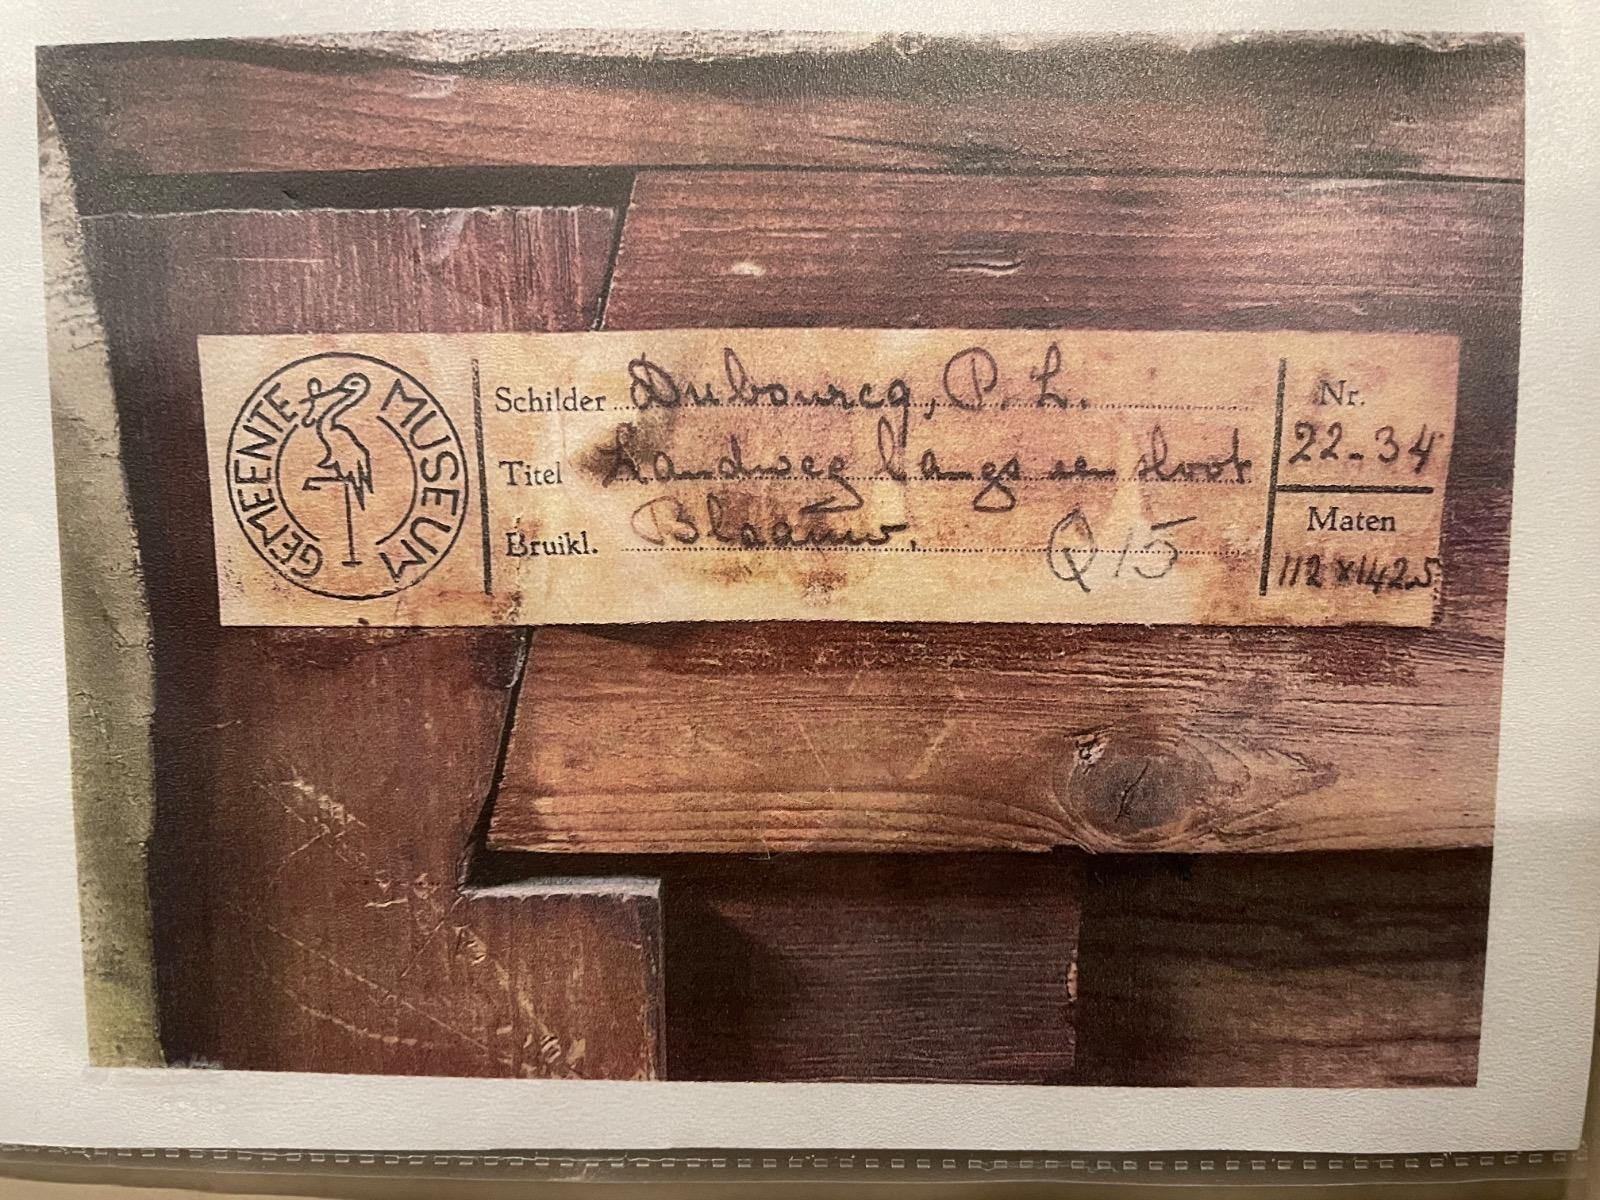 GEMEENTE MUSEUM
Schilder Dubourcq, P. L.
Titel Landweg langs een sloot
Bruikl. Blaauw. Q 15
Nr.
22-34
Maten
112 x 142.5